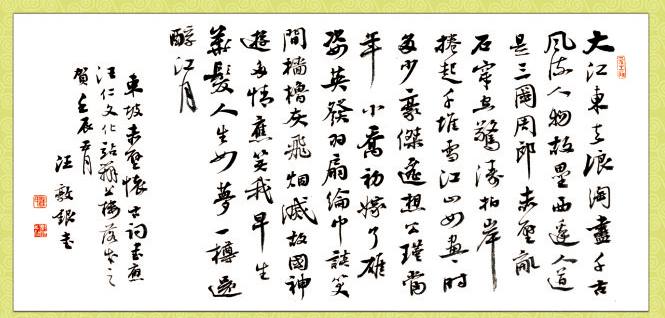 大江東去浪淘盡千古
風流人物故壘西邊人道
是三國周郎赤壁亂
石穿空驚濤拍岸
捲起千堆雪江山如畫一時
多少豪傑遥想公瑾當
年小喬初嫁了雄
姿英發羽扇綸巾談笑
間檣櫓灰飛烟滅故國神
遊多情應笑我早生
華髮人生如夢一樽還
酹江月
東坡赤壁懷古詞書應
汪仁文化站辦公樓落成之
賀壬辰五月
汪敏銀書